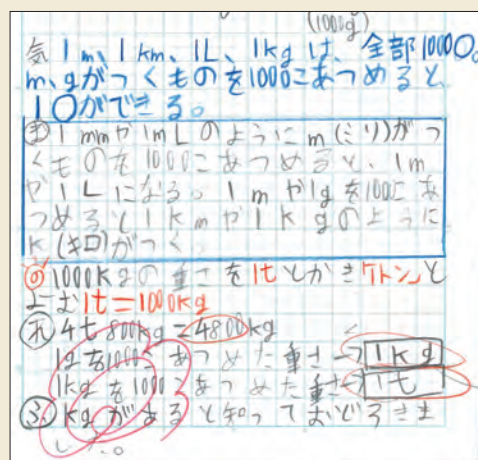 (1000g)
気 1m、1km、1L、1kgは、全部1000○。
m、gがつくものを1000こあつめると、
1○ができる。
ま 1mmや1mLのようにm(ミリ)がつ
くものを1000こあつめると、1m
や1Lになる。1mや1gを1000こあ
つめると1kmや1kgのように
K(キロ)がつく
1000Kgの重さを1tとかき「1トン」と
よむ 1t=1000kg
れ 4t800kg=4800kg
1gを1000こあつめた重さ→1kg
1kgを1000こあつめた重さ→1t
ふ kgがあると知っておどろきま
した。